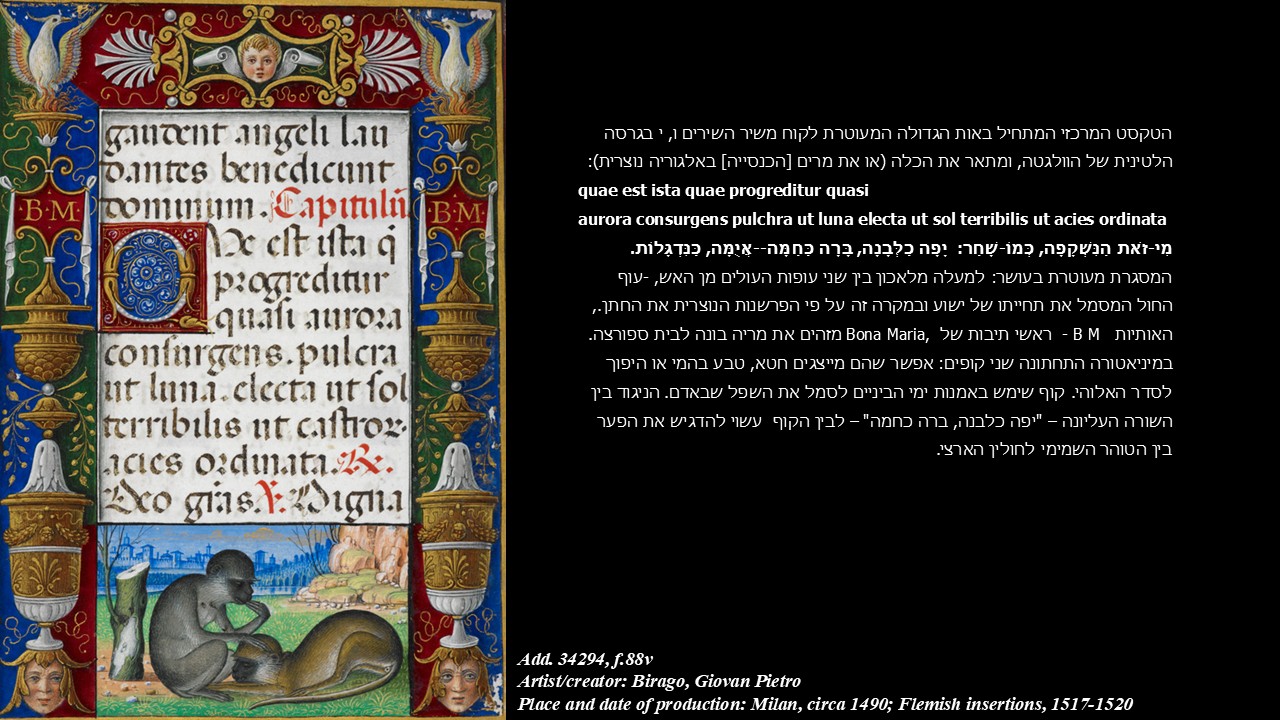 gaudent angeli lau
dantes benedicunt
dominum. Capitulũ
B·M·
B·M·
Que est ista q̃
progreditur
quasi aurora
consurgens. pulcra
ut luna. electa ut sol
terribilis ut castror·
acies ordinata. R̃.
Deo grãs. ℣. Digna
הטקסט המרכזי המתחיל באות הגדולה המעוטרת לקוח משיר השירים ו, י בגרסה
הלטינית של הוולגטה, ומתאר את הכלה (או את מרים [הכנסייה] באלגוריה נוצרית):
quae est ista quae progreditur quasi
aurora consurgens pulchra ut luna electa ut sol terribilis ut acies ordinata
מִי-זֹאת הַנִּשְׁקָפָה, כְּמוֹ-שָׁחַר: יָפָה כַלְּבָנָה, בָּרָה כַּחַמָּה--אֲיֻמָּה, כַּנִּדְגָּלוֹת.
המסגרת מעוטרת בעושר: למעלה מלאכון בין שני עופות העולים מן האש, -עוף
החול המסמל את תחייתו של ישוע ובמקרה זה על פי הפרשנות הנוצרית את החתן.,
האותיות B M - ראשי תיבות של Bona Maria, מזהים את מריה בונה לבית ספורצה.
במיניאטורה התחתונה שני קופים: אפשר שהם מייצגים חטא, טבע בהמי או היפוך
לסדר האלוהי. קוף שימש באמנות ימי הביניים לסמל את השפל שבאדם. הניגוד בין
השורה העליונה – "יפה כלבנה, ברה כחמה" – לבין הקוף עשוי להדגיש את הפער
בין הטוהר השמימי לחולין הארצי.
Add. 34294, f.88v
Artist/creator: Birago, Giovan Pietro
Place and date of production: Milan, circa 1490; Flemish insertions, 1517-1520